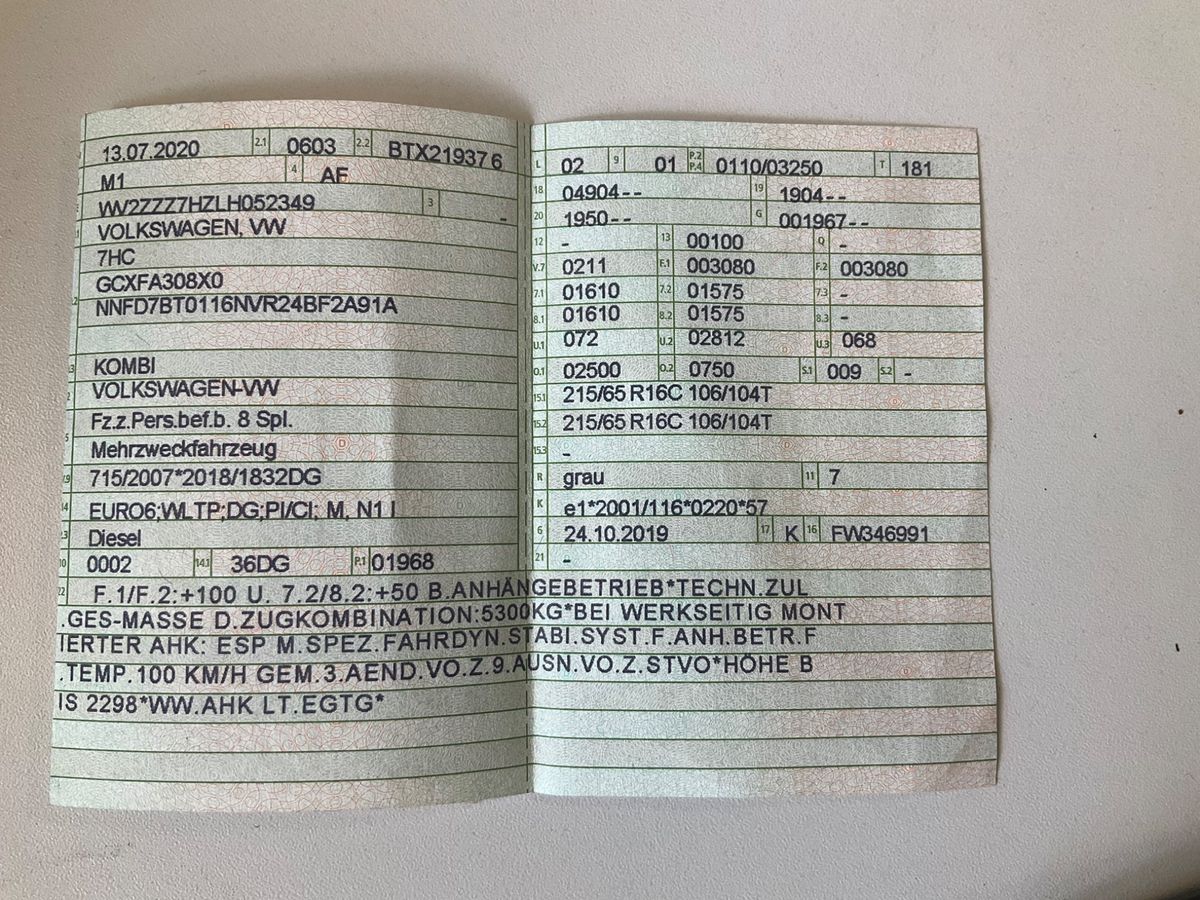 13.07.2020 2.1 0603 2.2 BTX21937 6
M1 4 AF
WV2ZZZ7HZLH052349 3 -
VOLKSWAGEN, VW
7HC
GCXFA308X0
NNFD7BT0116NVR24BF2A91A
KOMBI
VOLKSWAGEN-VW
Fz.z.Pers.bef.b. 8 Spl.
Mehrzweckfahrzeug
715/2007*2018/1832DG
EURO6;WLTP;DG;PI/CI; M, N1 I
Diesel
10 0002 14.1 36DG P.1 01968
L 02 9 01 P.2 P.4 0110/03250 T 181
18 04904-- 19 1904--
20 1950-- G 001967--
12 - 13 00100 Q -
V.7 0211 F.1 003080 F.2 003080
7.1 01610 7.2 01575 7.3 -
8.1 01610 8.2 01575 8.3 -
U.1 072 U.2 02812 U.3 068
O.1 02500 O.2 0750 S.1 009 S.2 -
15.1 215/65 R16C 106/104T
15.2 215/65 R16C 106/104T
15.3 -
R grau 11 7
K e1*2001/116*0220*57
6 24.10.2019 17 K 16 FW346991
21 -
22 F.1/F.2:+100 U. 7.2/8.2:+50 B.ANHÄNGEBETRIEB*TECHN.ZUL
.GES-MASSE D.ZUGKOMBINATION:5300KG*BEI WERKSEITIG MONT
IERTER AHK: ESP M.SPEZ.FAHRDYN.STABI.SYST.F.ANH.BETR.F
.TEMP.100 KM/H GEM.3.AEND.VO.Z.9.AUSN.VO.Z.STVO*HÖHE B
IS 2298*WW.AHK LT.EGTG*